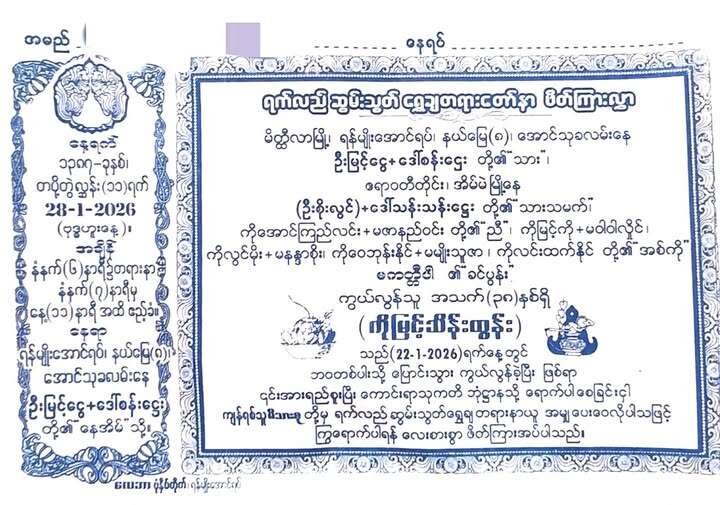 အမည်
နေရပ်
နေ့ရက်
၁၃၈၇-ခုနှစ်၊
တပို့တွဲလဆန်း(၁၁)ရက်
28-1-2026
(ဗုဒ္ဓဟူးနေ့)။
အချိန်
နံနက်(၆)နာရီ၌တရားနာ
နံနက်(၇)နာရီမှ
နေ့(၁၁)နာရီ အထိ ဧည့်ခံ။
နေရာ
ရန်မျိုးအောင်ရပ်၊ နယ်မြေ(၈)၊
အောင်သုခလမ်းနေ
ဦးမြင့်ငွေ+ဒေါ်စန်းဌေး
တို့၏"နေအိမ်"သို့။
ရက်လည် ဆွမ်းသွတ် ရေစက်ချတရားတော်နာ ဖိတ်ကြားလွှာ
မိတ္ထီလာမြို့၊ ရန်မျိုးအောင်ရပ်၊ နယ်မြေ(၈)၊ အောင်သုခလမ်းနေ
ဦးမြင့်ငွေ+ဒေါ်စန်းဌေး တို့၏"သား"၊
ဧရာဝတီတိုင်း၊ အိမ်မဲမြို့နေ
(ဦးစိုးလွင်)+ဒေါ်သန်းသန်းဌွေး တို့၏"သားသမက်"
ကိုအောင်ကြည်လင်း+မဇာနည်ဝင်း တို့၏"ညီ"၊ ကိုမြင့်ကို+မဝါဝါလှိုင်၊
ကိုလွင်မိုး+မနန္ဒာစိုး၊ ကိုဝေဘုန်းနိုင်+မမျိုးသူဇာ ၊ ကိုလင်းထက်နိုင် တို့၏"အစ်ကို"
မကတ္ထီပါ ၏"ခင်ပွန်း"
ကွယ်လွန်သူ အသက်(၃၈)နှစ်ရှိ
(ကိုမြင့်သိန်းထွန်း)
သည်(22-1-2026)ရက်နေ့တွင်
ဘဝတစ်ပါးသို့ ပြောင်းသွား ကွယ်လွန်ခဲ့ပြီး ဖြစ်ရာ
၎င်းအားရည်စူးပြီး ကောင်းရာသုကတိ ဘုံဌာနသို့ ရောက်ပါစေခြင်းငှါ
ကျန်ရစ်သူမိသားစု တို့မှ ရက်လည် ဆွမ်းသွတ်ရေစက်ချ တရားနာယူ အမျှပေးဝေလိုပါသဖြင့်
ကြွရောက်ပါရန် လေးစားစွာ ဖိတ်ကြားအပ်ပါသည်။
ပုံနှိပ်တိုက်၊ ရန်မျိုးအောင်ရပ်